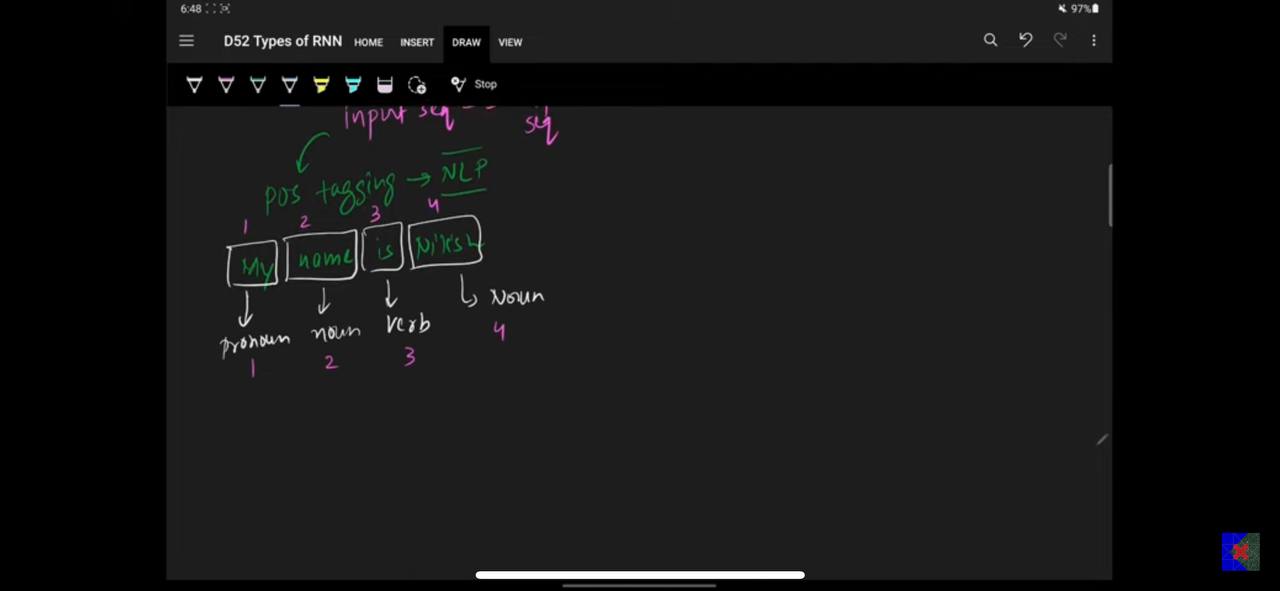 6:48
97%
D52 Types of RNN HOME INSERT DRAW VIEW
Stop
Input seq
seq
POS tagging → NLP
1 2 3 4
My name is Nitish
pronoun noun verb Noun
1 2 3 4